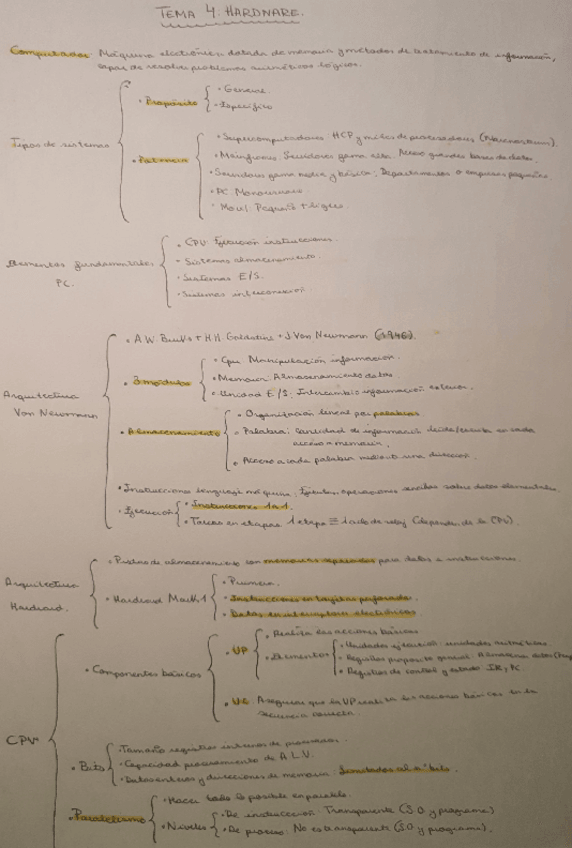 TEMA 4: HARDWARE.
Computador: Máquina electrónica dotada de memoria y métodos de tratamiento de información,
capaz de resolver problemas aritméticos lógicos.
Tipos de sistemas
• Propósito
• General
• Específico
• Potencia
• Supercomputadores: HCP y miles de procesadores
• Mainframes: Servidores gama alta. Acceso grandes bases de datos.
• Servidores gama media y básica: Departamentos o empresas pequeñas.
• PC: Monousuario
• Movil: Pequeño + ligero
Elementos fundamentales
PC.
• CPU: Ejecución instrucciones.
• Sistemas almacenamiento.
• Sistemas E/S.
• Sistemas interconexión
Arquitectura
Von Newmann
• A.W. Burks + H.H. Goldstine + J. Von Newmann (1946).
• 3 módulos
• Cpu: Manipulación información.
• Memoria: Almacenamiento datos.
• Unidad E/S: Intercambio información exterior.
• Almacenamiento
• Organización lineal por palabras
• Palabra: cantidad de información leída/escrita en cada
acceso a memoria.
• Acceso a cada palabra mediante una dirección.
• Instrucciones lenguaje máquina: Ejecutan operaciones sencillas sobre datos elementales
• Ejecución
• Instrucciones 1 a 1.
• Tareas en etapas 1 etapa ≡ 1 ciclo de reloj (depende de la CPU).
Arquitectura
Hardvard.
• Pistas de almacenamiento con memorias separadas para datos e instrucciones.
• Hardvard Mark 1
• Primera.
• Instrucciones en tarjetas perforadas.
• Datos en interruptores electrónicos
CPU
• Componentes básicos
• UP
• Realiza las acciones básicas
• Elementos
• Unidades ejecución: unidades aritméticas.
• Registros propósito general: Almacena datos
• Registros de control y estado IR y PC
• UC: Asegurar que la UP realiza las acciones básicas en la
secuencia correcta.
• Bits
• Tamaño registros internos de procesador.
• Capacidad procesamiento de A.L.U.
• Datos enteros y direcciones de memoria limitados al nº bits.
• Paralelismo
• Hacer todo lo posible en paralelo.
• Niveles
• De instrucción: Transparente (S.O y programa)
• De proceso: No es transparente (S.O y programa).